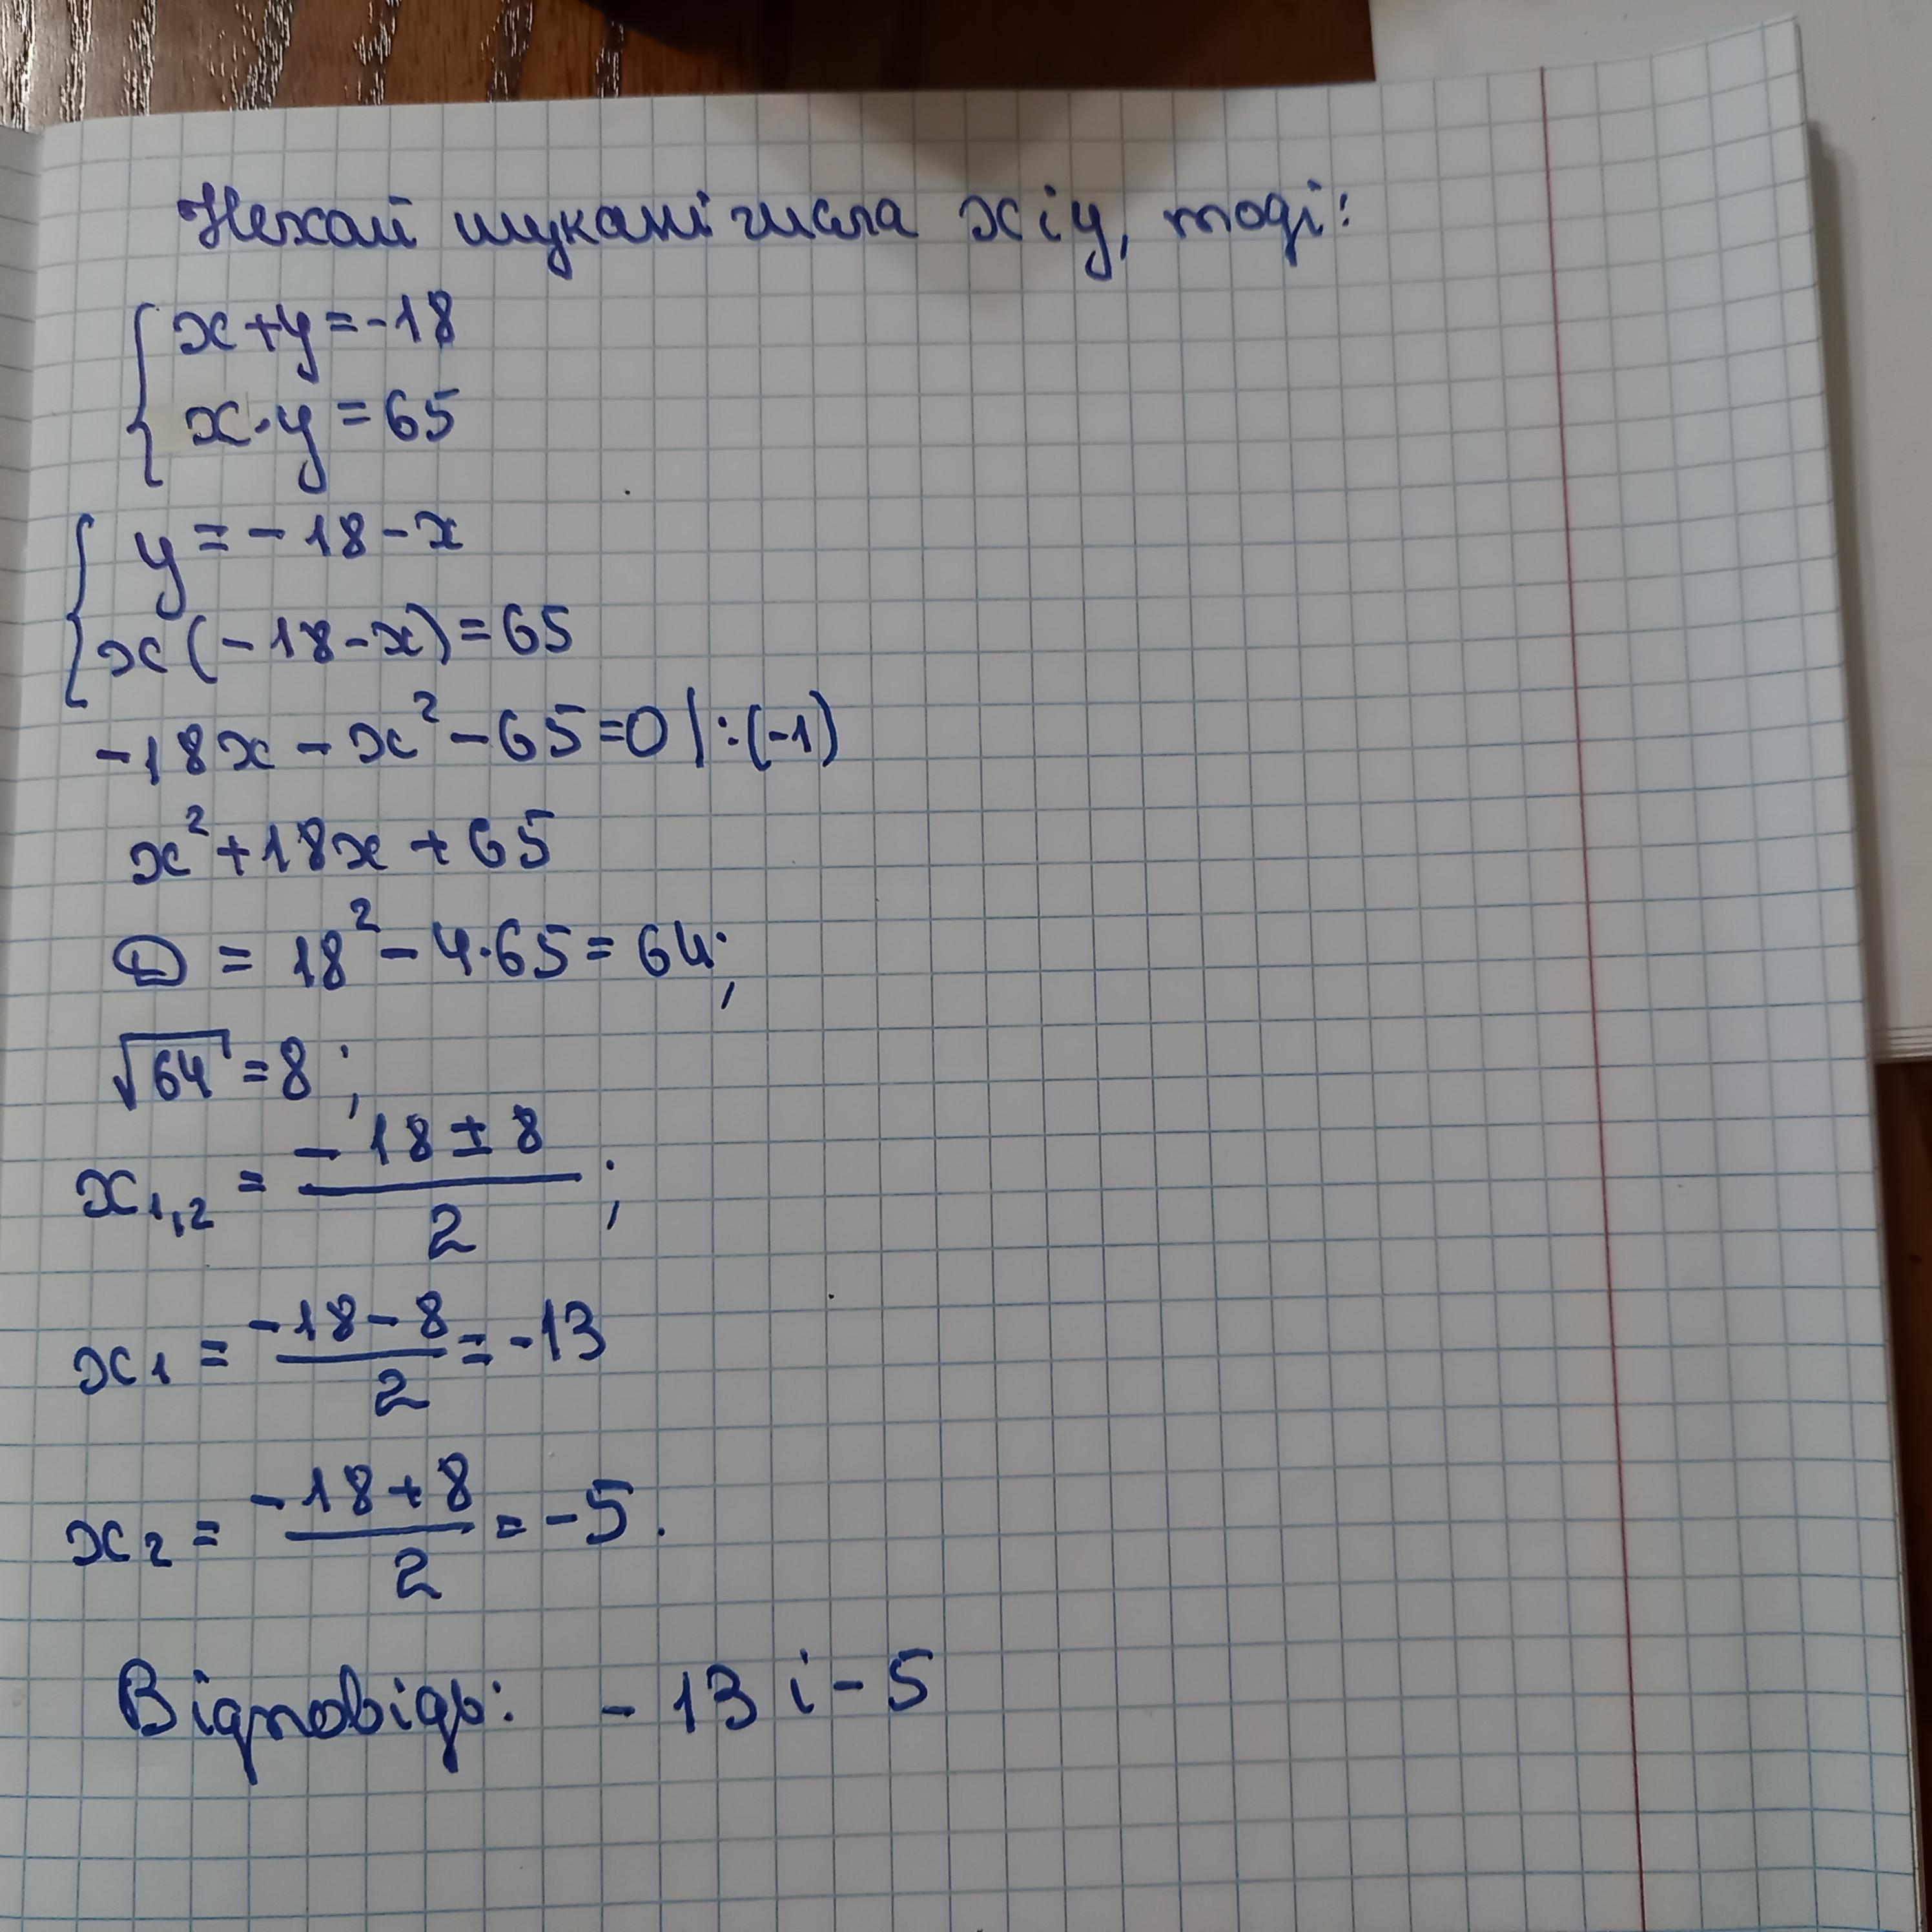 Нехай шукані числа x і y, тоді:
{ x + y = -18
x · y = 65
{ y = - 18 - x
x (- 18 - x) = 65
-18x - x² - 65 = 0 | : (-1)
x² + 18x + 65
D = 18² - 4·65 = 64;
√64 = 8 ;
x₁,₂ = (- 18 ± 8) / 2 ;
x₁ = (-18 - 8) / 2 = -13
x₂ = (-18 + 8) / 2 = -5.
Відповідь: - 13 і - 5